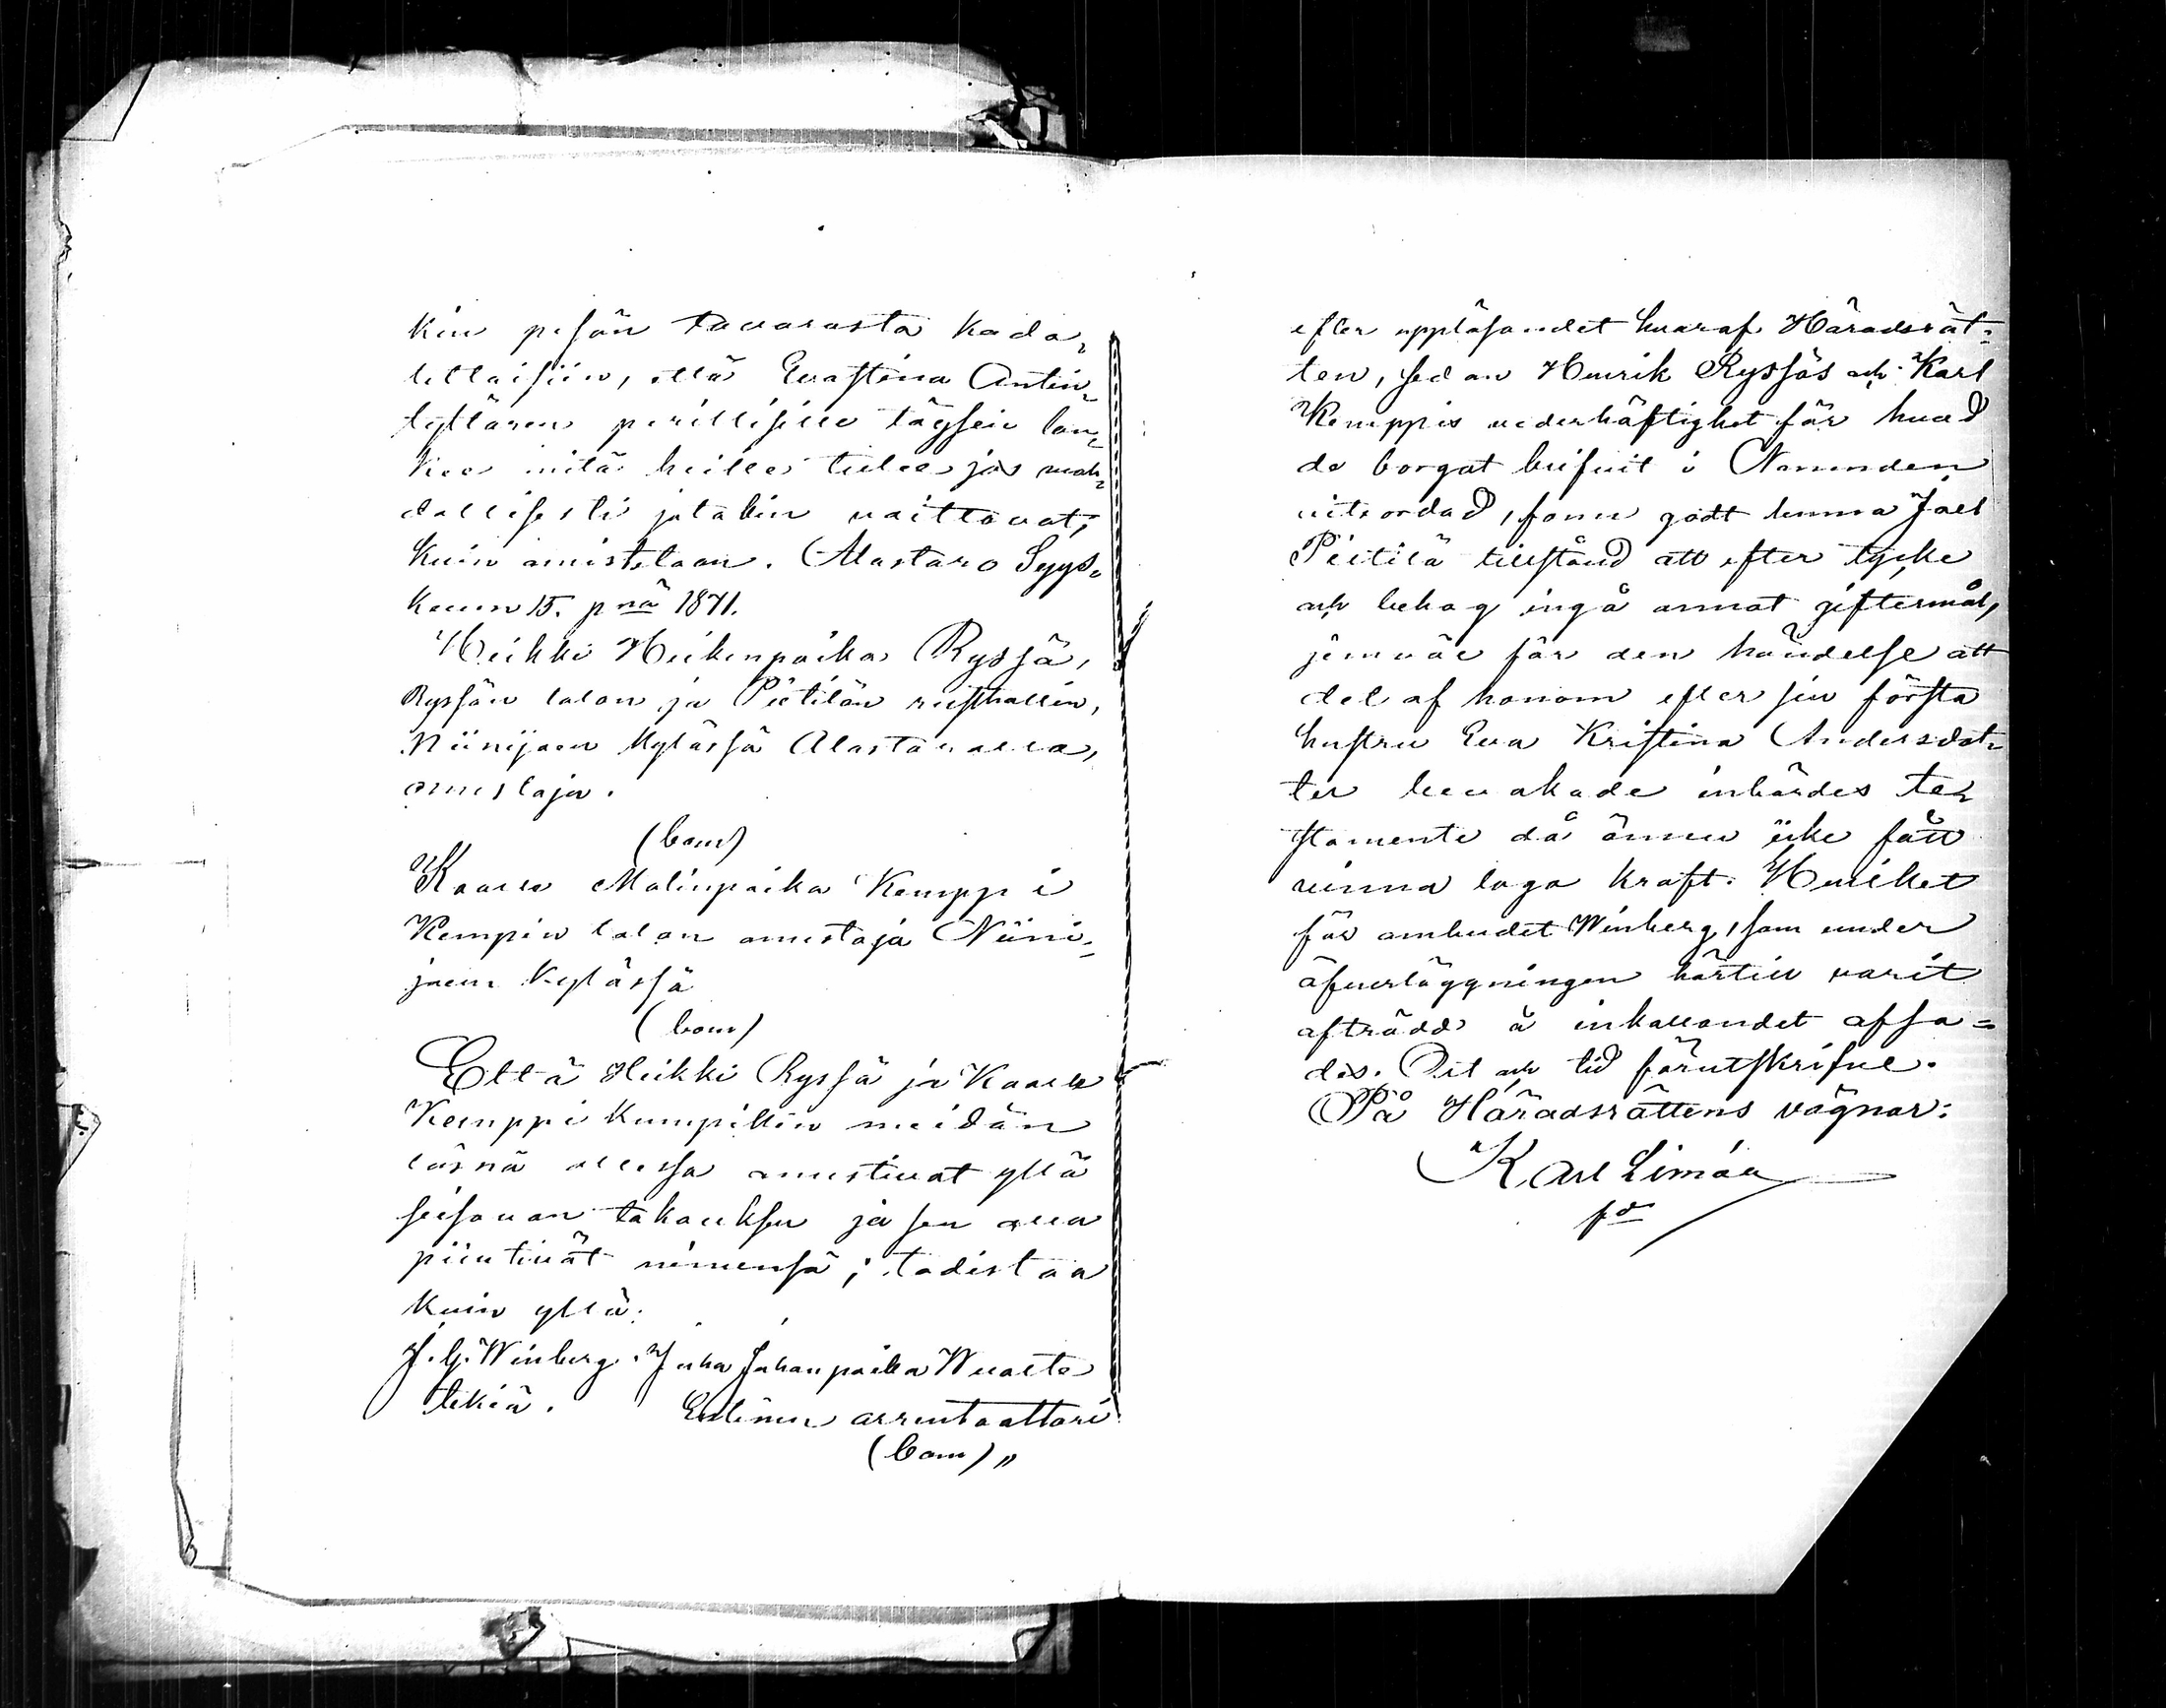 kin pesän tavarasta kada-
tettaisiin, että Evastina Antin-
tyttären perillisille täysin lan-
kee mitä heille tulee ja mah-
dollisesti jotakin voittavat;
kuin omistetaan. Alastaro Syys-
kuun 15. pnä 1871.
Heikki Heikinpoika Ryssä,
Ryssän talon ja Pietilän rusthollin,
Niinijoen kylässä Alastarolla,
omistaja.
(bom)
Kaarle Matinpoika Kemppi
Kempin talon omistaja Niini-
joen kylässä
(bom)
Että Heikki Ryssä ja Kaarle
Kemppi kumpikin meidän
läsnä ollessa omistivat yllä
seisovan takauksen ja sen alla
piirtivät nimensä; todistaa
kuin yllä:
J. G. Winberg. Juha Juhanpoika
tekiä. Entinen arrentaattori
(bom)"
efter uppläsandet hvaraf Häradsrät-
ten, sedan Henrik Ryssäs och Karl
Kemppis vederhäftighet för hvad
de borgat blifvit i Nämnden
vitsordad, fann godt lemna Joel
Pietilä tillstånd att efter tycke
och behag ingå annat giftermål,
jemväl för den händelse att
det af honom efter sin första
hustru Eva Kristina Andersdot-
ter bevakade inbördes te-
stamente då ännu icke fått
vinna laga kraft. Hvilket
för ombudet Winberg, som under
öfverläggningen härtill varit
afträdd å inkallandet afsa=
des. Ort och tid förutskrifne.
På Häradsrättens vägnar:
Karl Limón